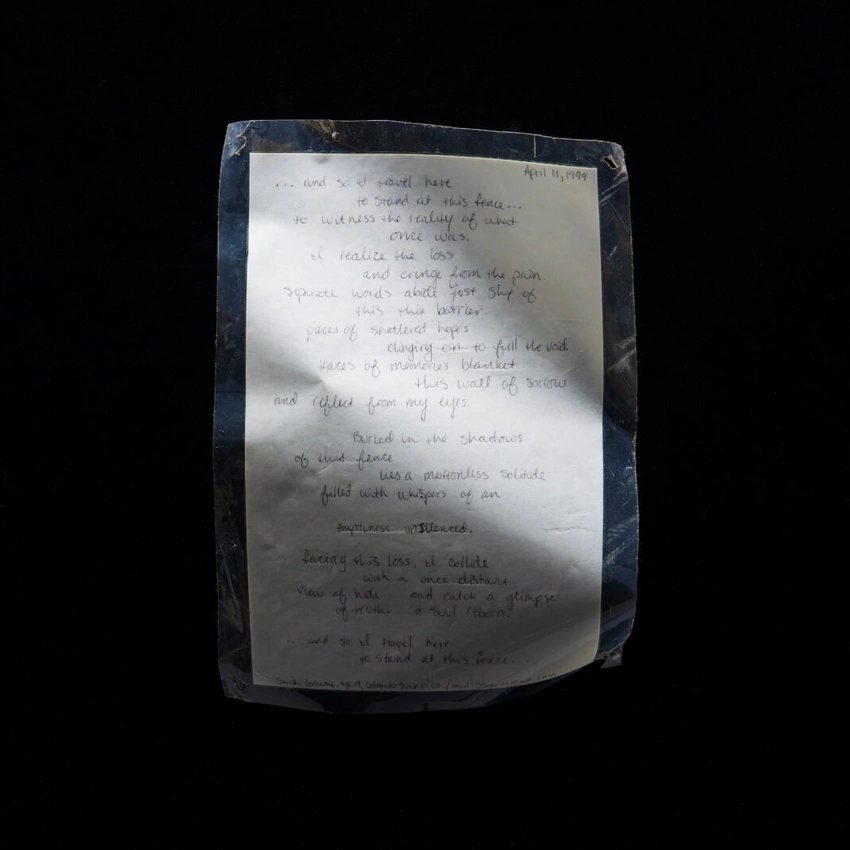 April 11, 1999
... and so I travel here
to stand at this fence...
to witness the reality of what
once was.
I realize the loss
and cringe from the pain.
separate words abide just shy of
this thin barrier
pieces of shattered hopes
clinging to fill the void.
traces of memories blanket
this wall of sorrow
and reflect from my eyes.
Buried in the shadows
of this fence
lies a motionless solitude
filled with whispers of an
emptiness unsilenced.
facing this loss, I collide
with a once distant
view of hate and catch a glimpse
of truth. a soul reborn.
... and so I travel here
to stand at this fence....
Sarah age 19, Colorado Springs, CO / email